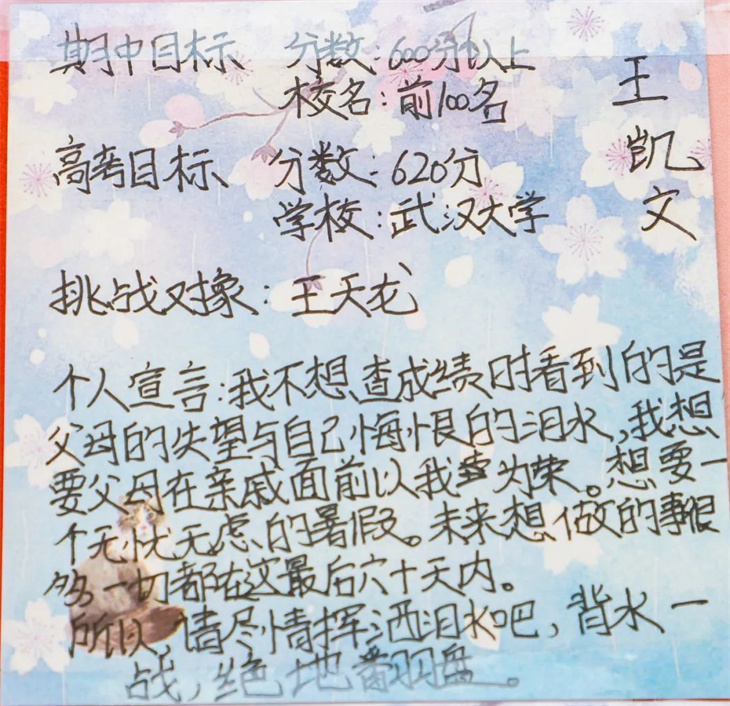 期中目标 分数:600分以上
校名:前100名
王凯文
高考目标 分数:620分
学校:武汉大学
挑战对象:王天龙
个人宣言:我不想查成绩时看到的是
父母的失望与自己悔恨的泪水,我想
要父母在亲戚面前以我为荣。想要一
个无忧无虑的暑假。未来想做的事很
多一切都在这最后六十天内。
所以,请尽情挥洒泪水吧,背水一
战,绝地翻盘。